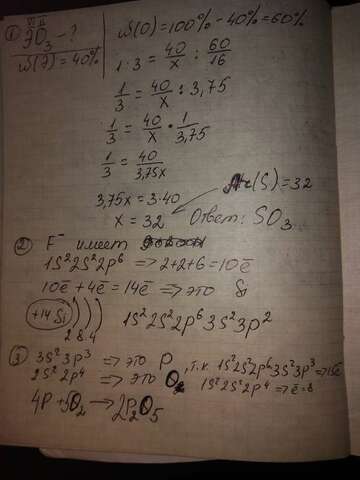 ① VI II
ЭO₃ - ?
ω(Э) = 40%
ω(O) = 100% - 40% = 60%
1:3 = 40/x : 60/16
1/3 = 40/x : 3,75
1/3 = 40/x • 1/3,75
1/3 = 40/3,75x
3,75x = 3·40
x = 32
Ar(S) = 32
Ответ: SO₃.
② F⁻ имеет
1S²2S²2p⁶ => 2+2+6 = 10ē
10ē + 4ē = 14ē => это Si
+14 Si ) ) )
2 8 4
1S²2S²2p⁶3S²3p²
③ 3S²3p³ => это P, т.к. 1S²2S²2p⁶3S²3p³ => 15ē
2S²2p⁴ => это O, 1S²2S²2p⁴ => ē=8
4P + 5O₂ → 2P₂O₅